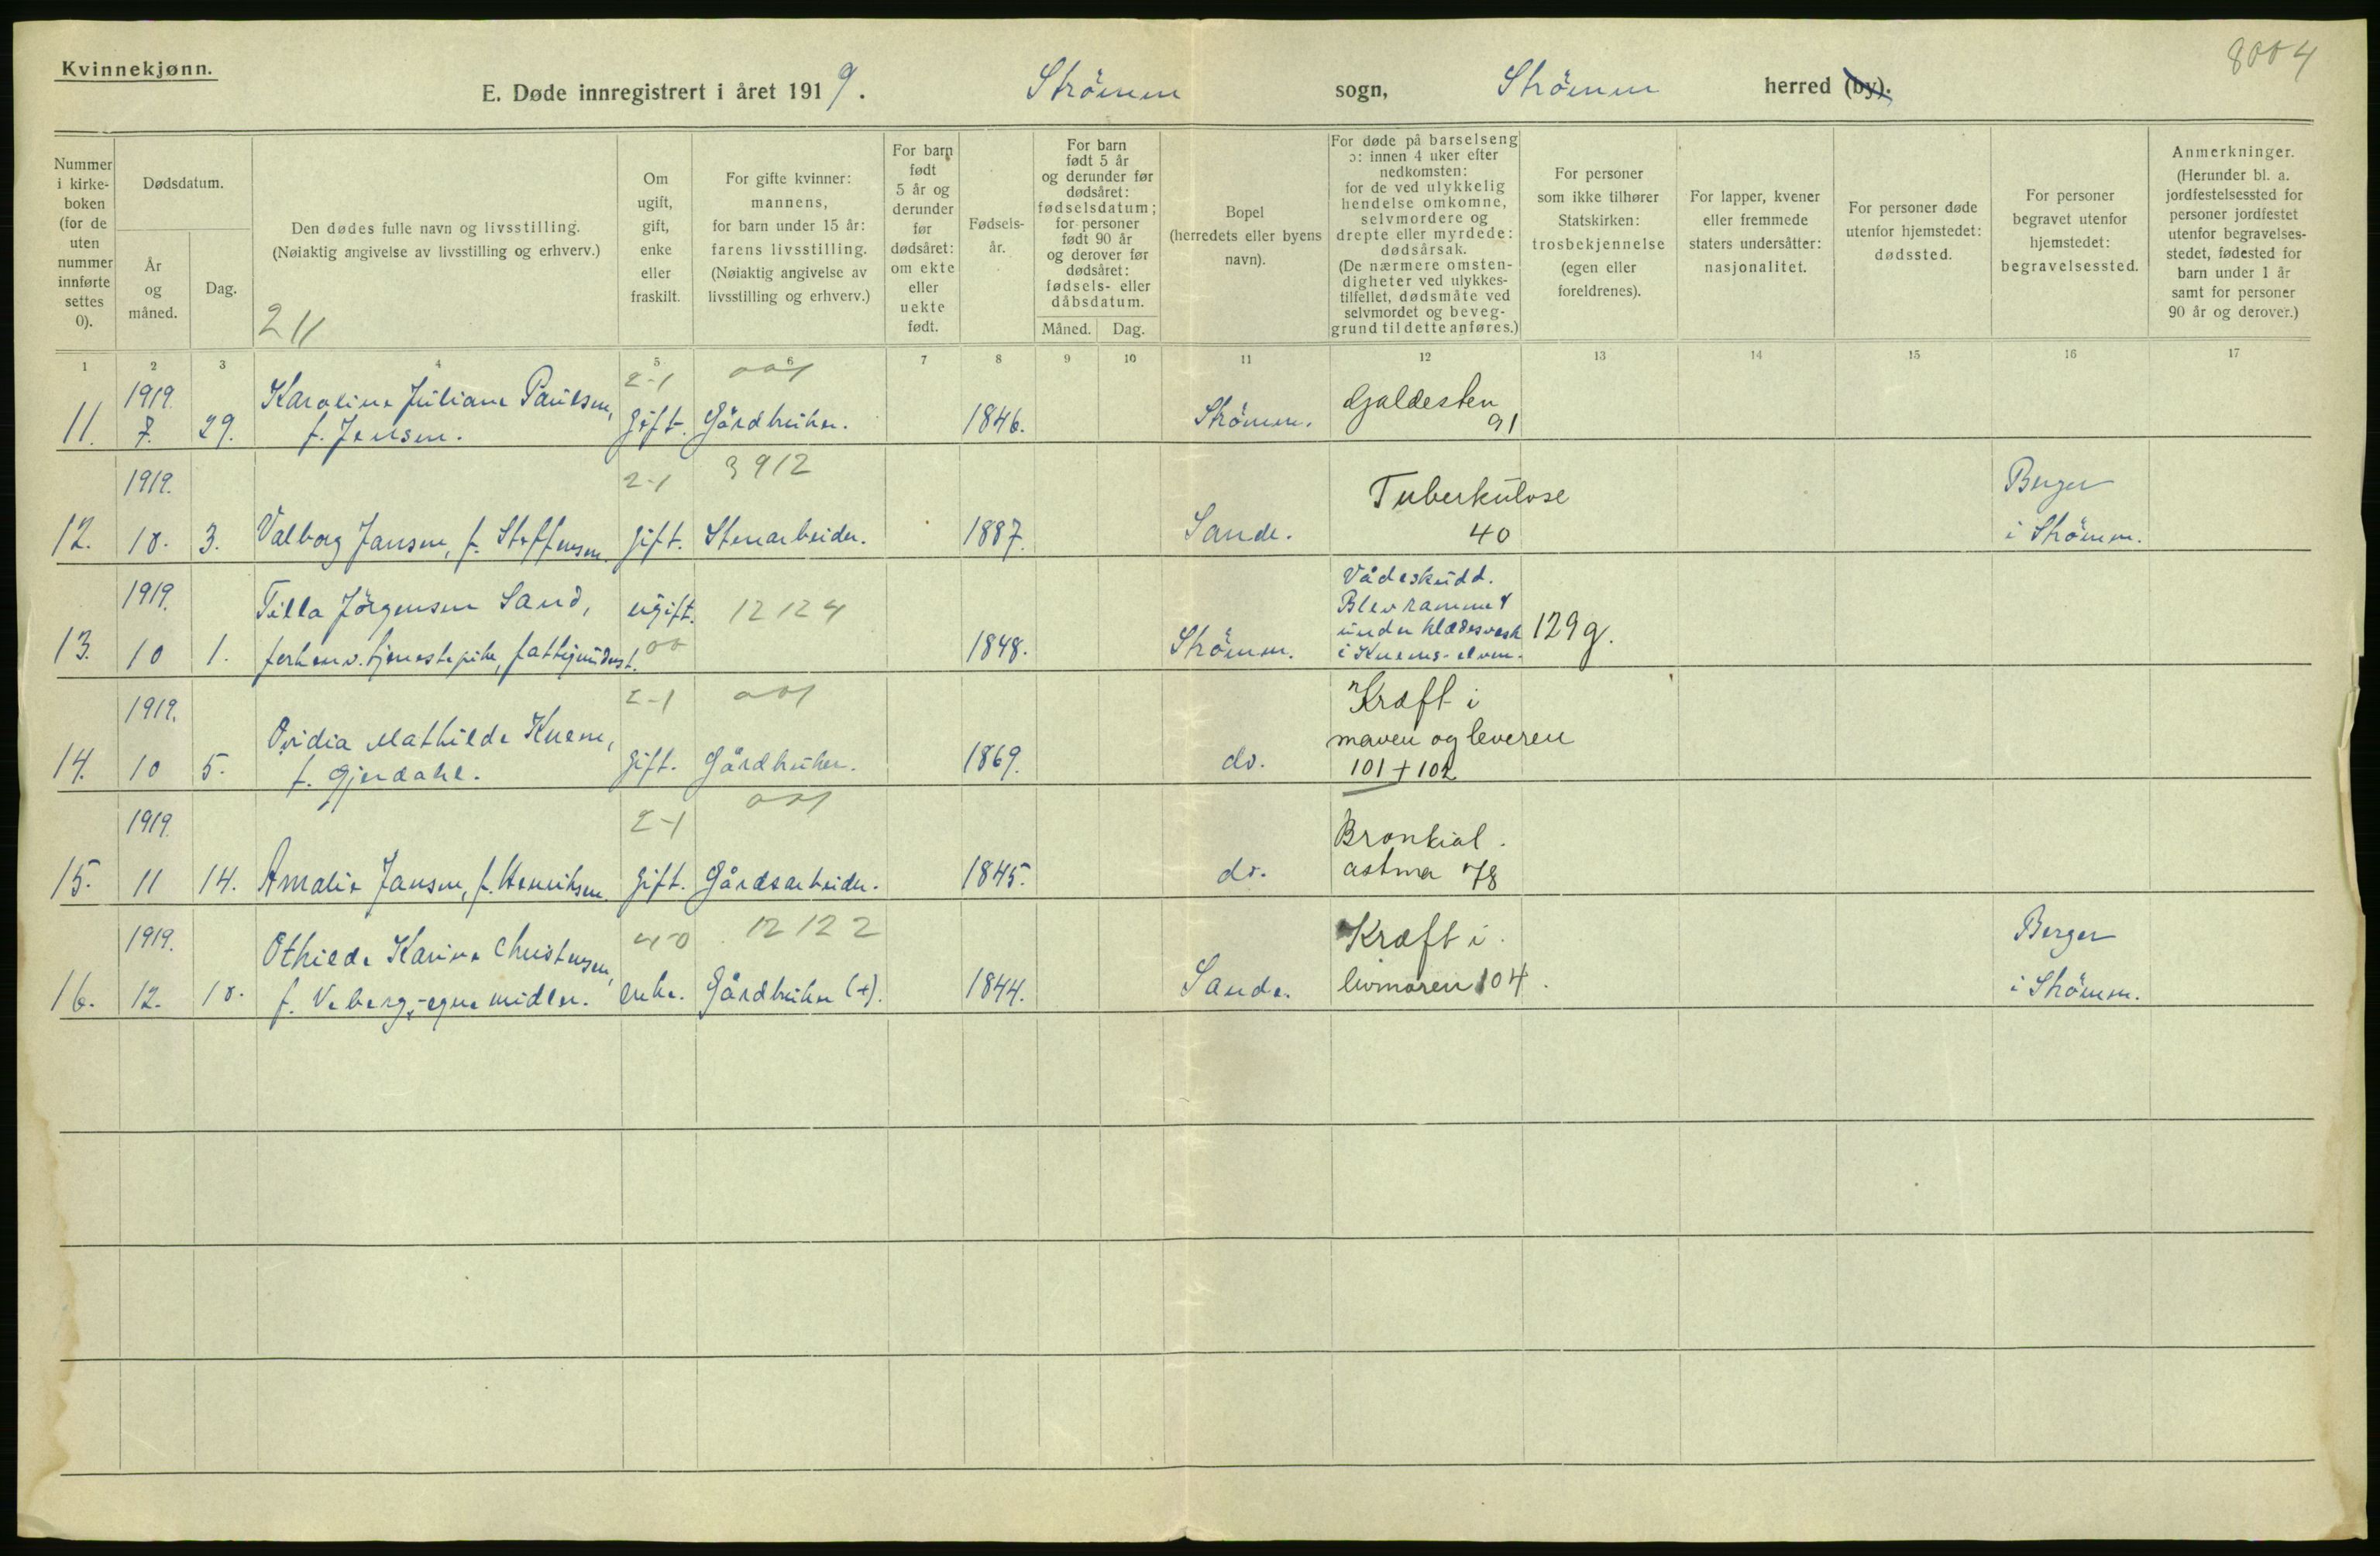 8004
Kvinnekjønn.
E. Døde innregistrert i året 1919. Strömm sogn, Strömm herred (by).
Nummer i kirke-boken (for de uten nummer innførte settes 0).
Dødsdatum.
År og måned.
Dag.
Den dødes fulle navn og livsstilling.
(Nøiaktig angivelse av livsstilling og erhverv.)
211
Om ugift, gift, enke eller fraskilt.
For gifte kvinner: mannens, for barn under 15 år: farens livsstilling. (Nøiaktig angivelse av livsstilling og erhverv.)
For barn født 5 år og derunder før dødsåret: om ekte eller uekte født.
Fødsels-år.
For barn født 5 år og derunder før dødsåret: fødselsdatum; for personer født 90 år og derover før dødsåret: fødsels- eller dåbsdatum.
Måned. Dag.
Bopel (herredets eller byens navn).
For døde på barselseng ɔ: innen 4 uker efter nedkomsten: for de ved ulykkelig hendelse omkomne, selvmordere og drepte eller myrdede: dødsårsak. (De nærmere omsten-digheter ved ulykkes-tilfellet, dødsmåte ved selvmordet og beveg-grund til dette anføres.)
For personer som ikke tilhører Statskirken: trosbekjennelse (egen eller foreldrenes).
For lapper, kvener eller fremmede staters undersåtter: nasjonalitet.
For personer døde utenfor hjemstedet: dødssted.
For personer begravet utenfor hjemstedet: begravelsessted.
Anmerkninger. (Herunder bl. a. jordfestelsessted for personer jordfestet utenfor begravelses-stedet, fødested for barn under 1 år samt for personer 90 år og derover.)
1 2 3 4 5 6 7 8 9 10 11 12 13 14 15 16 17
1919. 2-1 001
Karoline Juliane Paulsen, Galdesten
11. 7. 29. f. Jensen. Gift. Gårdbruker. 1846. Strömm. 91
1919. 2-1 3912 Tuberkulose Berger
12. 10. 3. Valborg Jansen, f. Steffensen gift. Stenarbeider. 1887. Sande. 40 i Strömm.
1919. Tilla Jörgensen Sand, ugift. 12124 Vådeskudd.
Blev rammet
under klædesvask 129g.
13. 10 1. forhenv. tjenestepike, fattigunderst. 00 1848. Strömm. i Knems-elven.
1919. 2-1 001 Kræft i
Ovidia Mathilde Knem, maven og leveren
14. 10 5. f. Gjerdahl. gift. Gårdbruker. 1869. do. 101 + 102
1919. 2-1 001 Bronkial
15. 11 14. Amalie Jansen, f. Henriksen gift. Gårdsarbeider. 1845. do. astma 78
1919. 4-0 12122 Kræft i Berger
Othilde Karine Christensen,
16. 12. 10. f. Veberg, - egne midler. enke. Gårdbruker (+). 1844. Sande. livmoren 104 i Strömm.